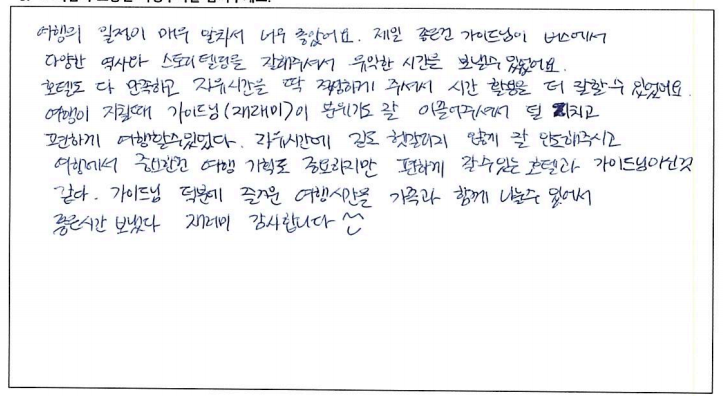 여행의 일정이 매우 알차서 너무 좋았어요. 제일 좋은건 가이드님이 버스에서
다양한 역사나 스토리텔링을 잘해주셔서 유익한 시간을 보낼수 있었어요.
호텔도 다 만족하고 자유시간을 딱 적절하게 주셔서 시간 활용을 더 잘할수 있었어요.
여행이 지칠때 가이드님(재래미)이 분위기도 잘 이끌어주셔서 덜 지치고
편하게 여행할수있었다. 자유시간에 길도 헷갈리지 않게 잘 안내해주시고
여행에서 중요한건 여행 기획도 중요하지만 편하게 잘수있는 호텔과 가이드님이신것
같다. 가이드님 덕분에 즐거운 여행시간을 가족과 함께 나눌수 있어서
좋은시간 보냈다 재래미 감사합니다